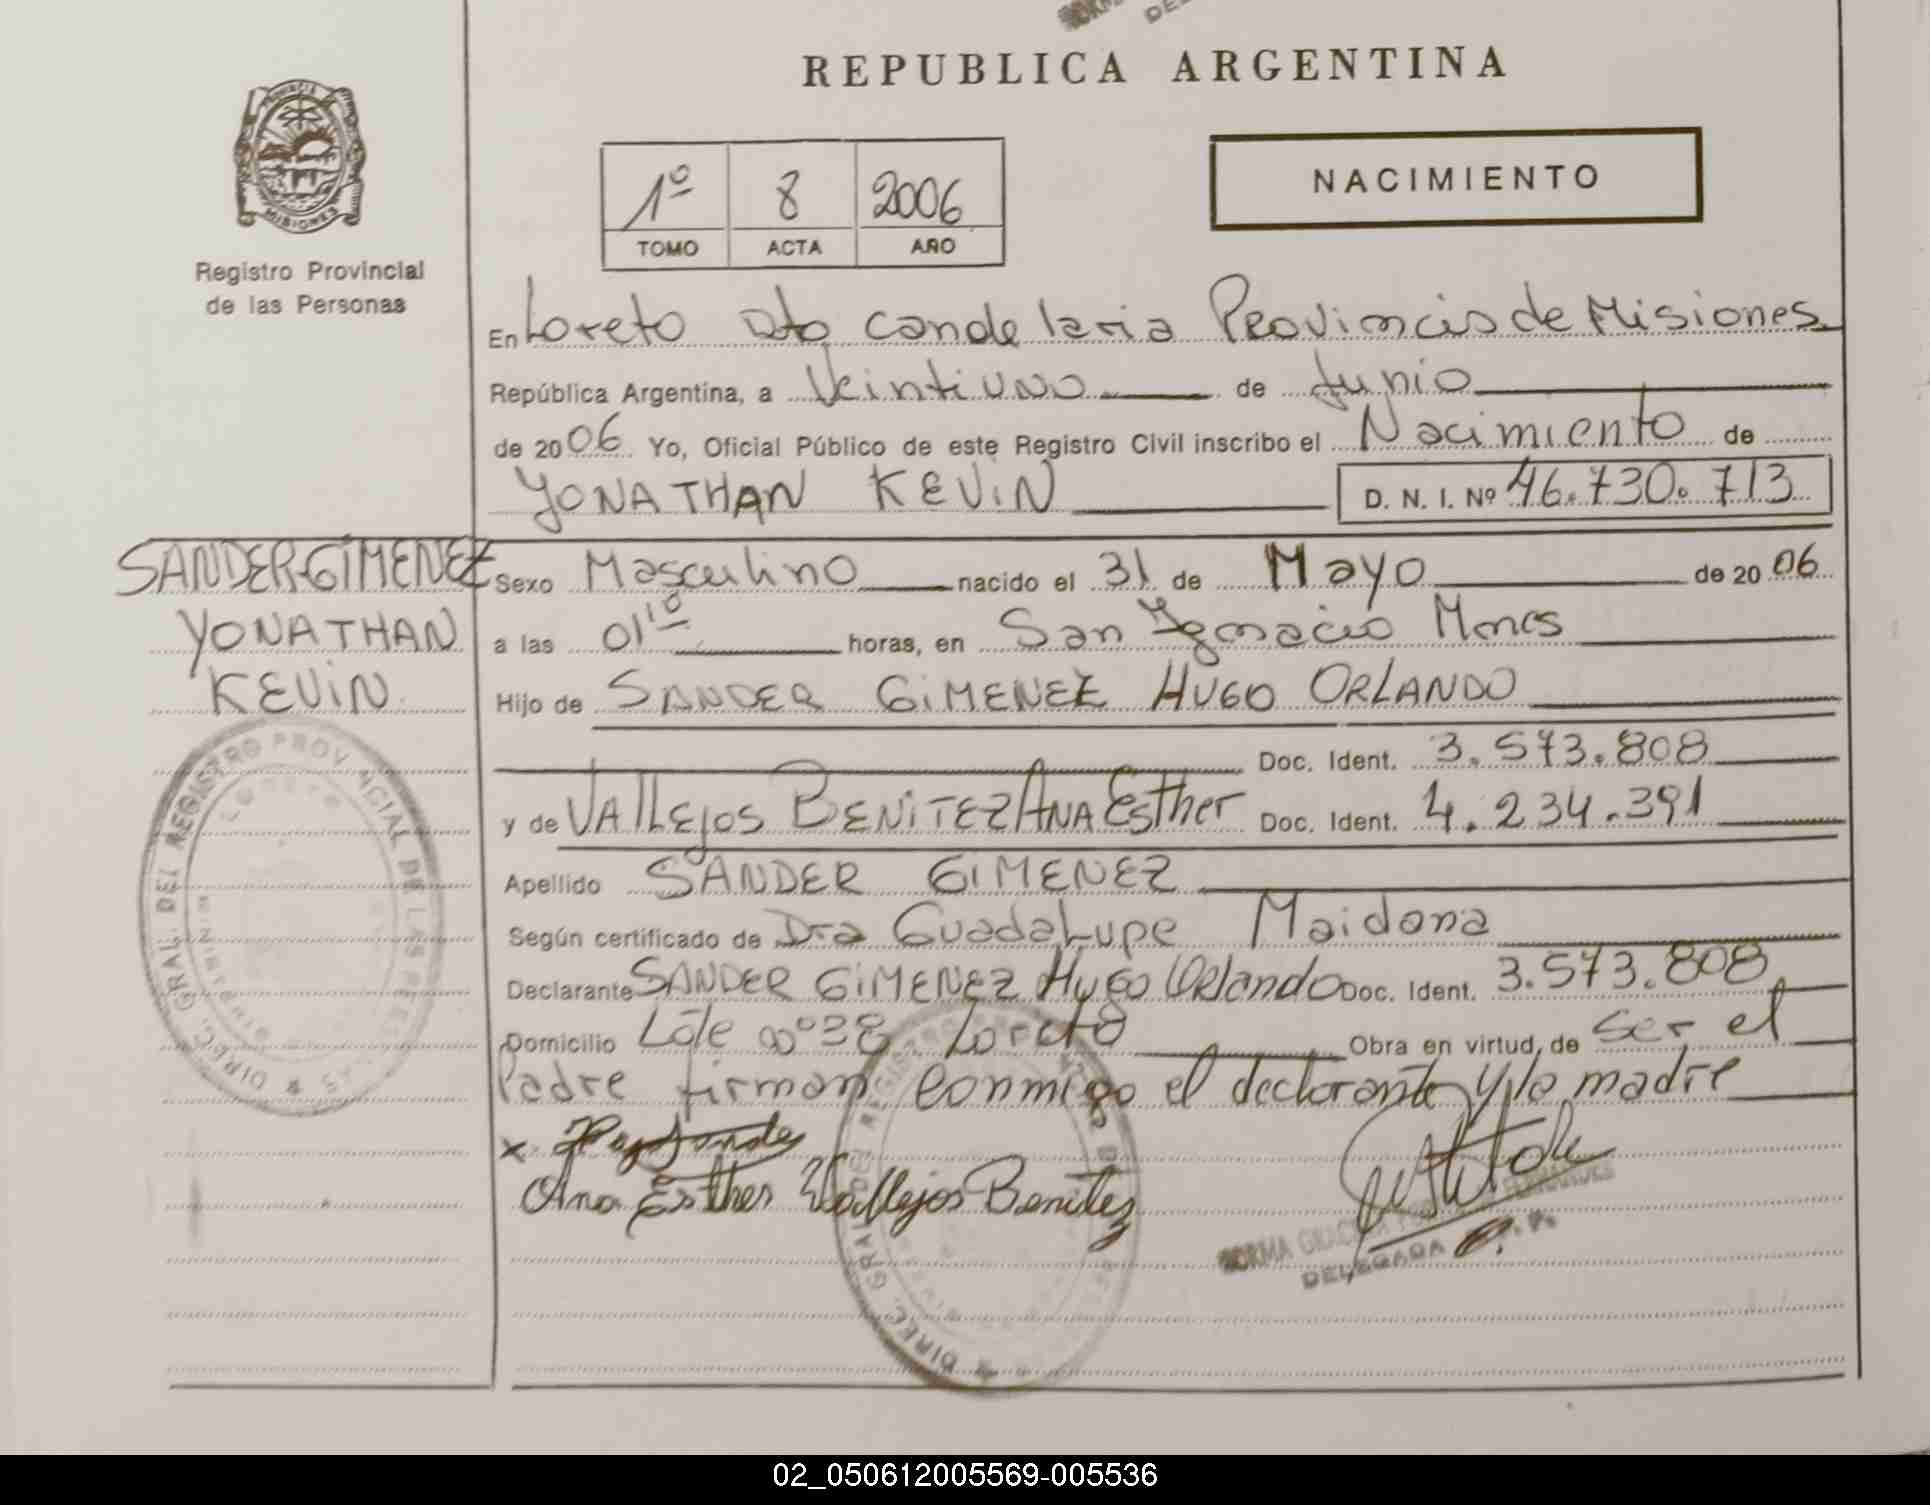 REPUBLICA ARGENTINA
PROVINCIA
MISIONES
Registro Provincial
de las Personas
1º 8 2006
TOMO ACTA AÑO
NACIMIENTO
En Loreto Dto Candelaria Provincia de Misiones
República Argentina, a Veintiuno de Junio
de 2006 Yo, Oficial Público de este Registro Civil inscribo el Nacimiento de
YONATHAN KEVIN D. N. I. Nº 46.730.713
SANDER GIMENEZ
YONATHAN
KEVIN
Sexo Masculino nacido el 31 de Mayo de 2006
a las 01'10 horas, en San Ignacio Mnes
Hijo de SANDER GIMENEZ HUGO ORLANDO
Doc. Ident. 3.573.808
y de VALLEjos BENITEZ ANA Esther Doc. Ident. 4.234.391
Apellido SANDER GIMENEZ
Según certificado de Dra Guadalupe Maidana
Declarante SANDER GIMENEZ Hugo Orlando Doc. Ident. 3.573.808
Domicilio Lote nº 38 Loreto Obra en virtud, de ser el
Padre firman conmigo el declarante y la madre
x
Ana Esther Vallejos Benitez
NORMA GRACIELA FERNANDES
DELEGADA
DIREC. GRAL. DEL REGISTRO PROVINCIAL DE LAS PERSONAS
LORETO
DIREC. GRAL. DEL REGISTRO
02_050612005569-005536